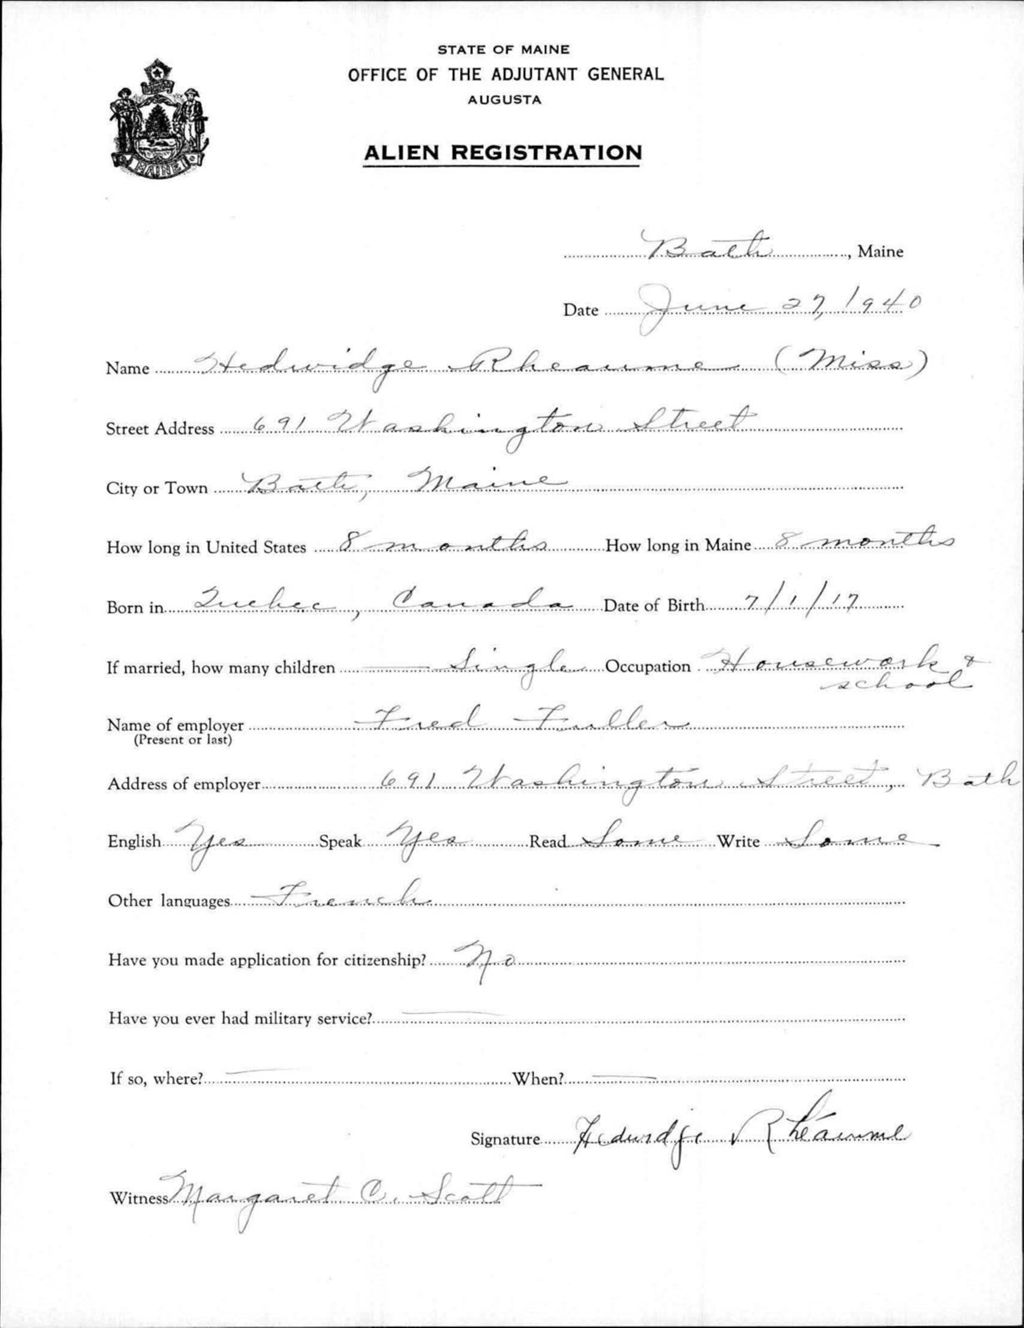 STATE OF MAINE
OFFICE OF THE ADJUTANT GENERAL
AUGUSTA
ALIEN REGISTRATION
MAINE
Bath, Maine
Date June 27, 1940
Name Hedwidge Rheaume (Miss)
Street Address 691 Washington Street
City or Town Bath, Maine
How long in United States 8 months How long in Maine 8 months
Born in Quebec, Canada Date of Birth 7/1/17
If married, how many children — Single Occupation Housework &
school
Name of employer Fred Fuller
(Present or last)
Address of employer 691 Washington Street, Bath
English Yes Speak Yes Read Some Write Some
Other languages French
Have you made application for citizenship? No
Have you ever had military service? —
If so, where? — When? —
Signature Hedwidge Rhéaume
Witness Margaret C. Scott